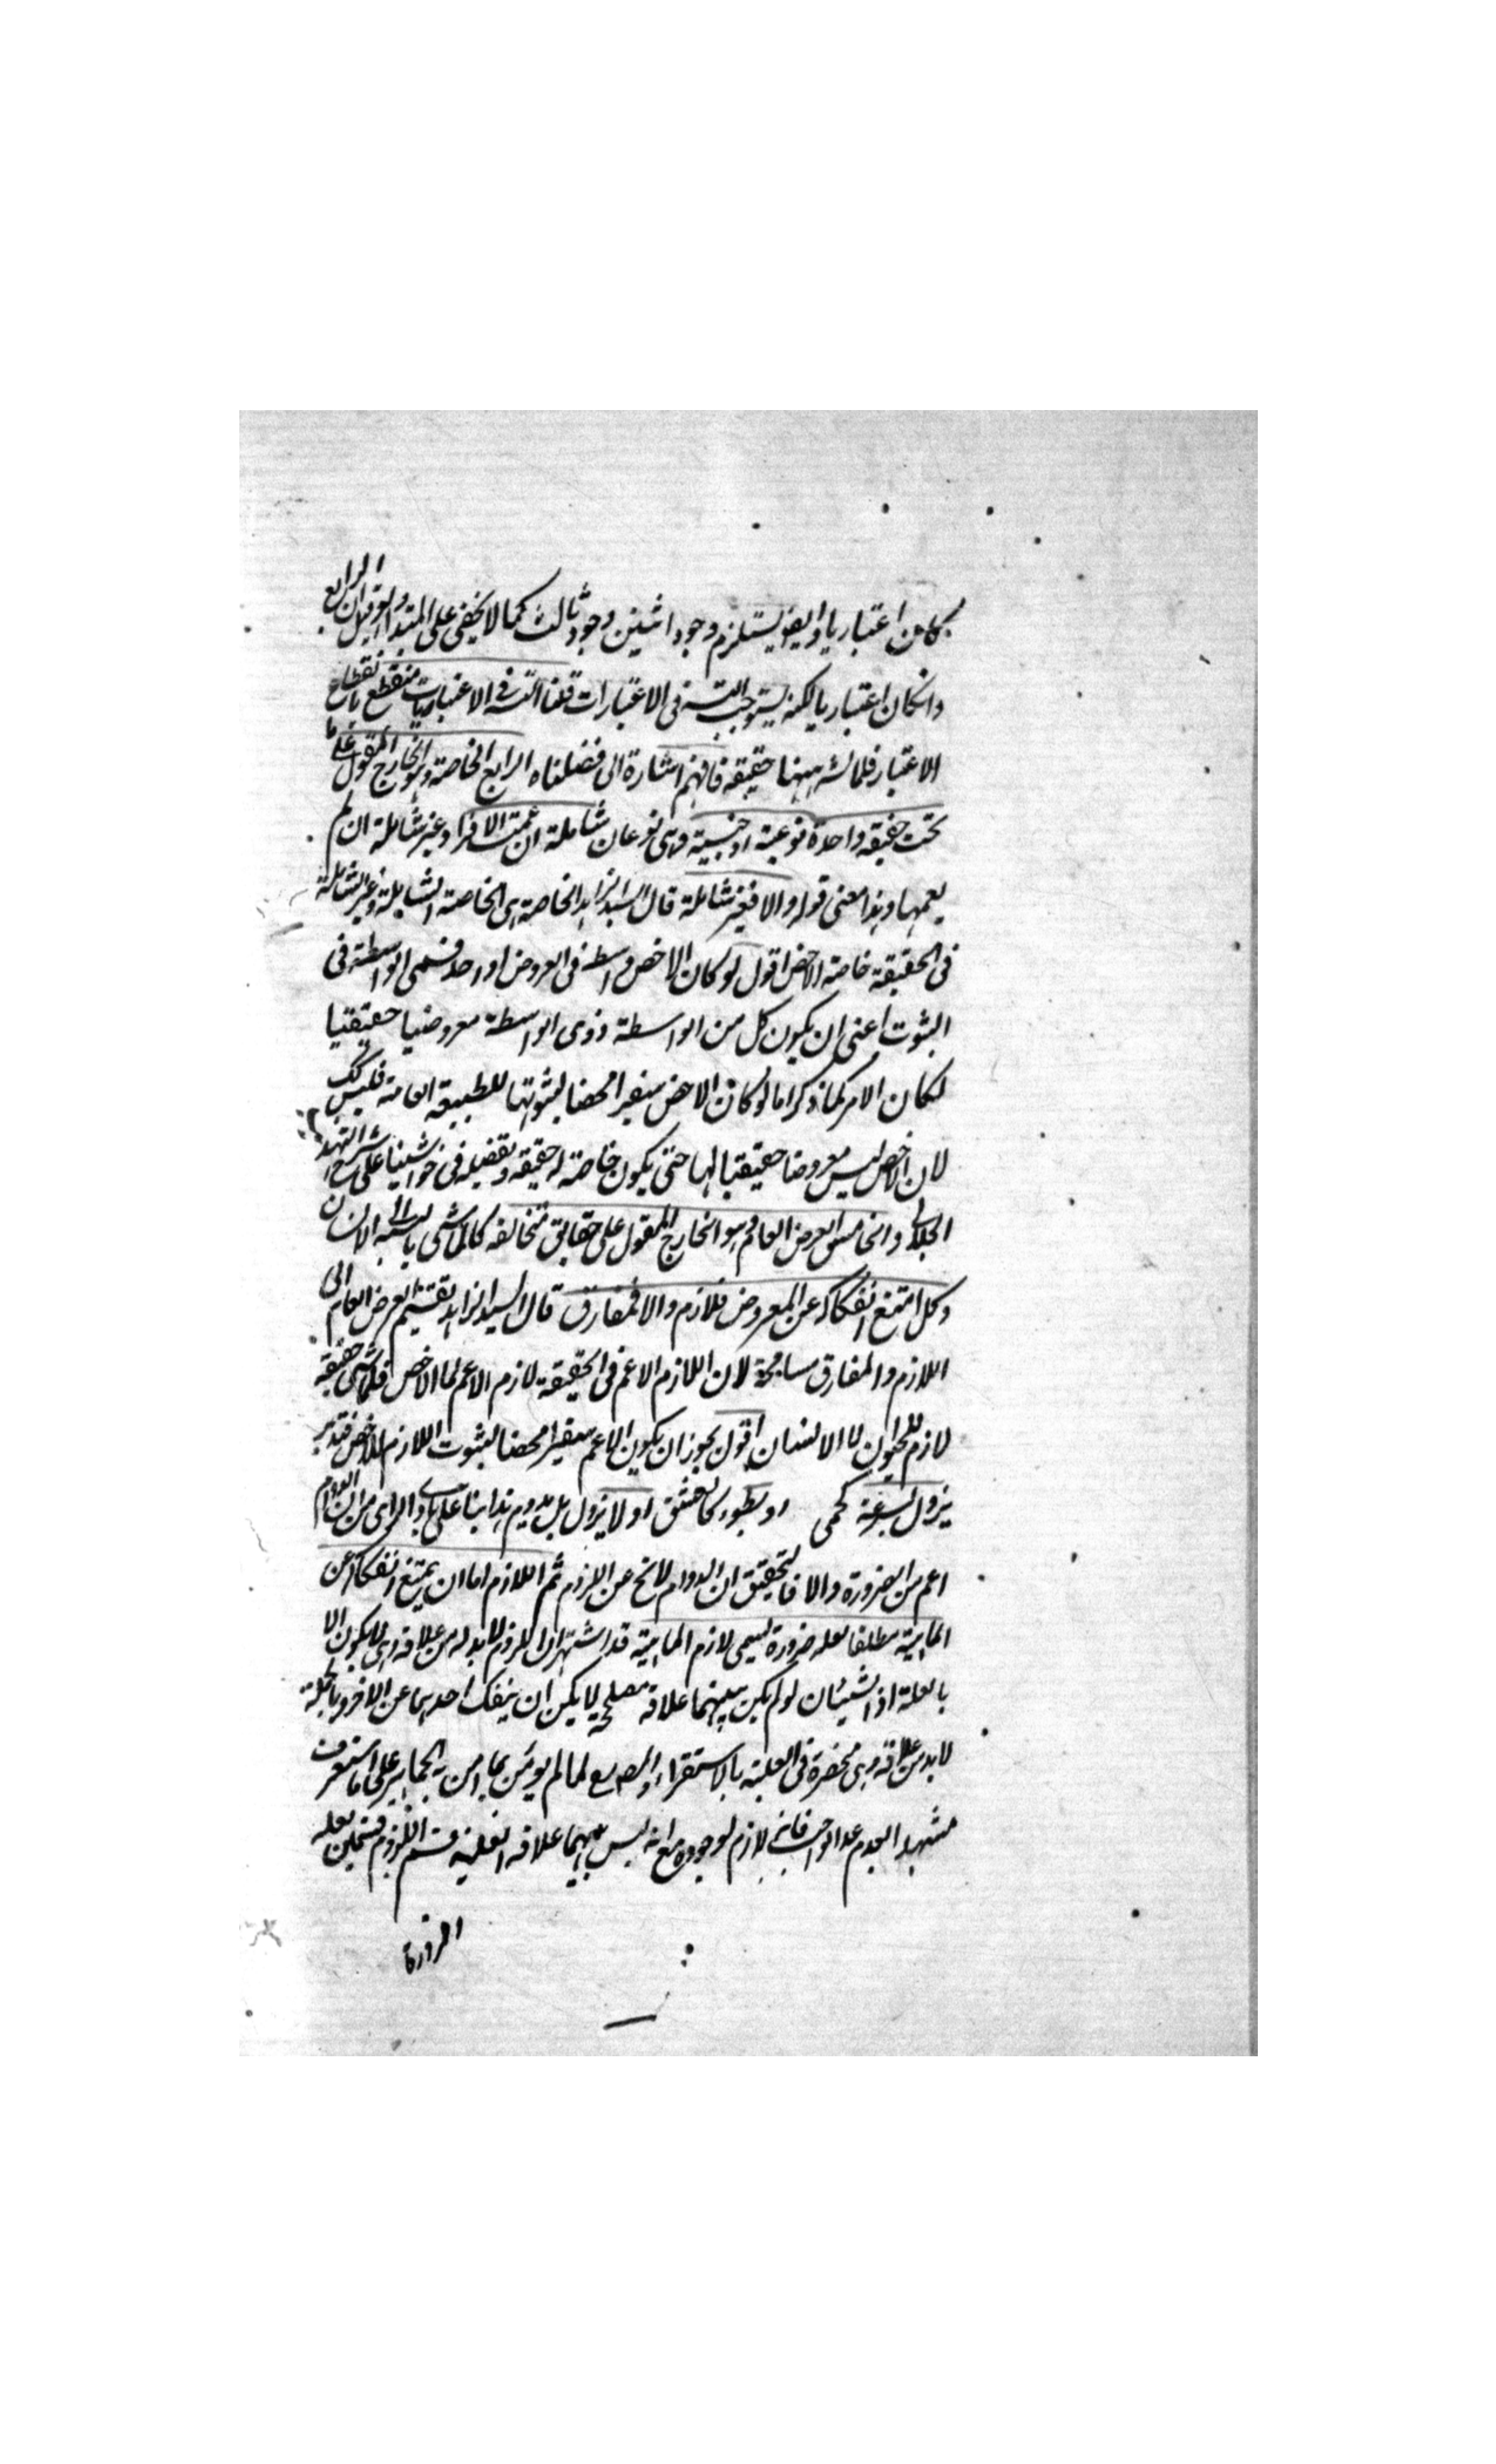 كان اعتباريا وايضا يستلزم وجود اثنين وجود ثالث كما لا يخفى على المتبدا الرابع
وانكان اعتباريا لكنه يستوجب التسه فى الاعتبارات قلنا التسه فى الاعتباريات منقطع بانقطاع
الاعتبار فلا تسه ههنا حقيقه فافهم اشارة الى فضلناه الرابع الخاصة وهو الخارج المقول على ما
تحت حقيقه واحدة نوعية او جنسية وهى نوعان شاملة ان عمت الافراد وغير شاملة ان لم
يعمها وهذا معنى قوله والا فغير شاملة قال السيد الزاهد الخاصة اى الخاصة الشاملة وغير الشاملة
فى الحقيقة خاصة الاخص اقول لو كان الاخص واسطه فى العروض او احد قسمى الواسطة فى
الثبوت اعنى ان يكون كل من الواسطة وذى الواسطة معروضيا حقيقيا
لكان الامر كما ذكر اما لو كان الاخص سفيرا محضا لثبوتها للطبيعه العامة فليس كك
لان الاخص ليس معروضا حقيقيا لها حتى يكون خاصة له حقيقه وتفضيله فى حواشينا على شرح التهذيب
الجلالى والخامس العرض العام وهو الخارج المقول على حقايق متخالفه كالماشى بالنسبة الى الانسان
وكل امتنع انفكاكه عن المعروض فلازم والا فمفارق قال السيد الزاهد تقسيم العرض العام الى
اللازم والمفارق مسامحة لان اللازم الاعم فى الحقيقة لازم الاعم لما الاخص فلماشى حقيقه
لازم للحيوان لا الانسان اقول يجوز ان يكون الاعم سفيرا محضا لثبوت اللازم للاخص فتدبر
يزول بسرعة كحمى او بطوء كالعشق او لا يزول بل يدوم هذا بناء على بادى الراى من ان الدوام
اعم من الضرورة والا فالتحقيق ان الدوام لا يخ عن اللزوم ثم اللازم اما ان يمتنع انفكاكه عن
الماهية مطلقا لعله ضرورة يسمى لازم الماهية قد اشتهر ان اللزوم لا بد له من علاقة اى لا يكون الا
بالعلة اذ الشيئان لو لم يكن بينهما علاقة مصلحة لا يمكن ان ينفك احدهما عن الاخر وبالجملة
لا بد من علاقة وهى منحصرة فى العلية بالاستقراء والمصه لما لم يؤمن بما امن به الجماهير على ما ستعرف
مشهد العدم عدا الواجب فانه لازم لوجوده مع انه ليس بينهما علاقه العلية قسم اللزوم قسمين لعله
الضرورة